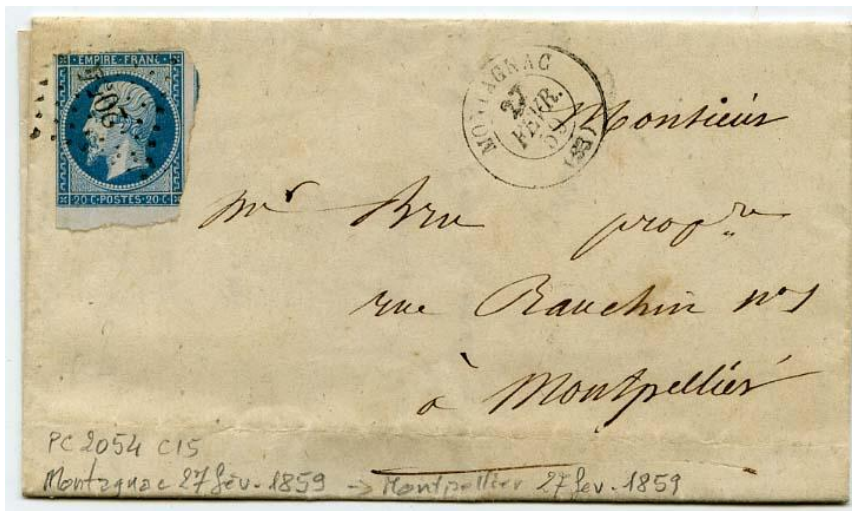 EMPIRE FRANC
20 C·POSTES·20 C
MONTAGNAC
27
FEVR.
59
(33)
Monsieur
Mr Bru propre
rue Bauchin no 1
à Montpellier
PC 2054 C15
Montagnac 27 fév. 1859 -> Montpellier 27 fev. 1859